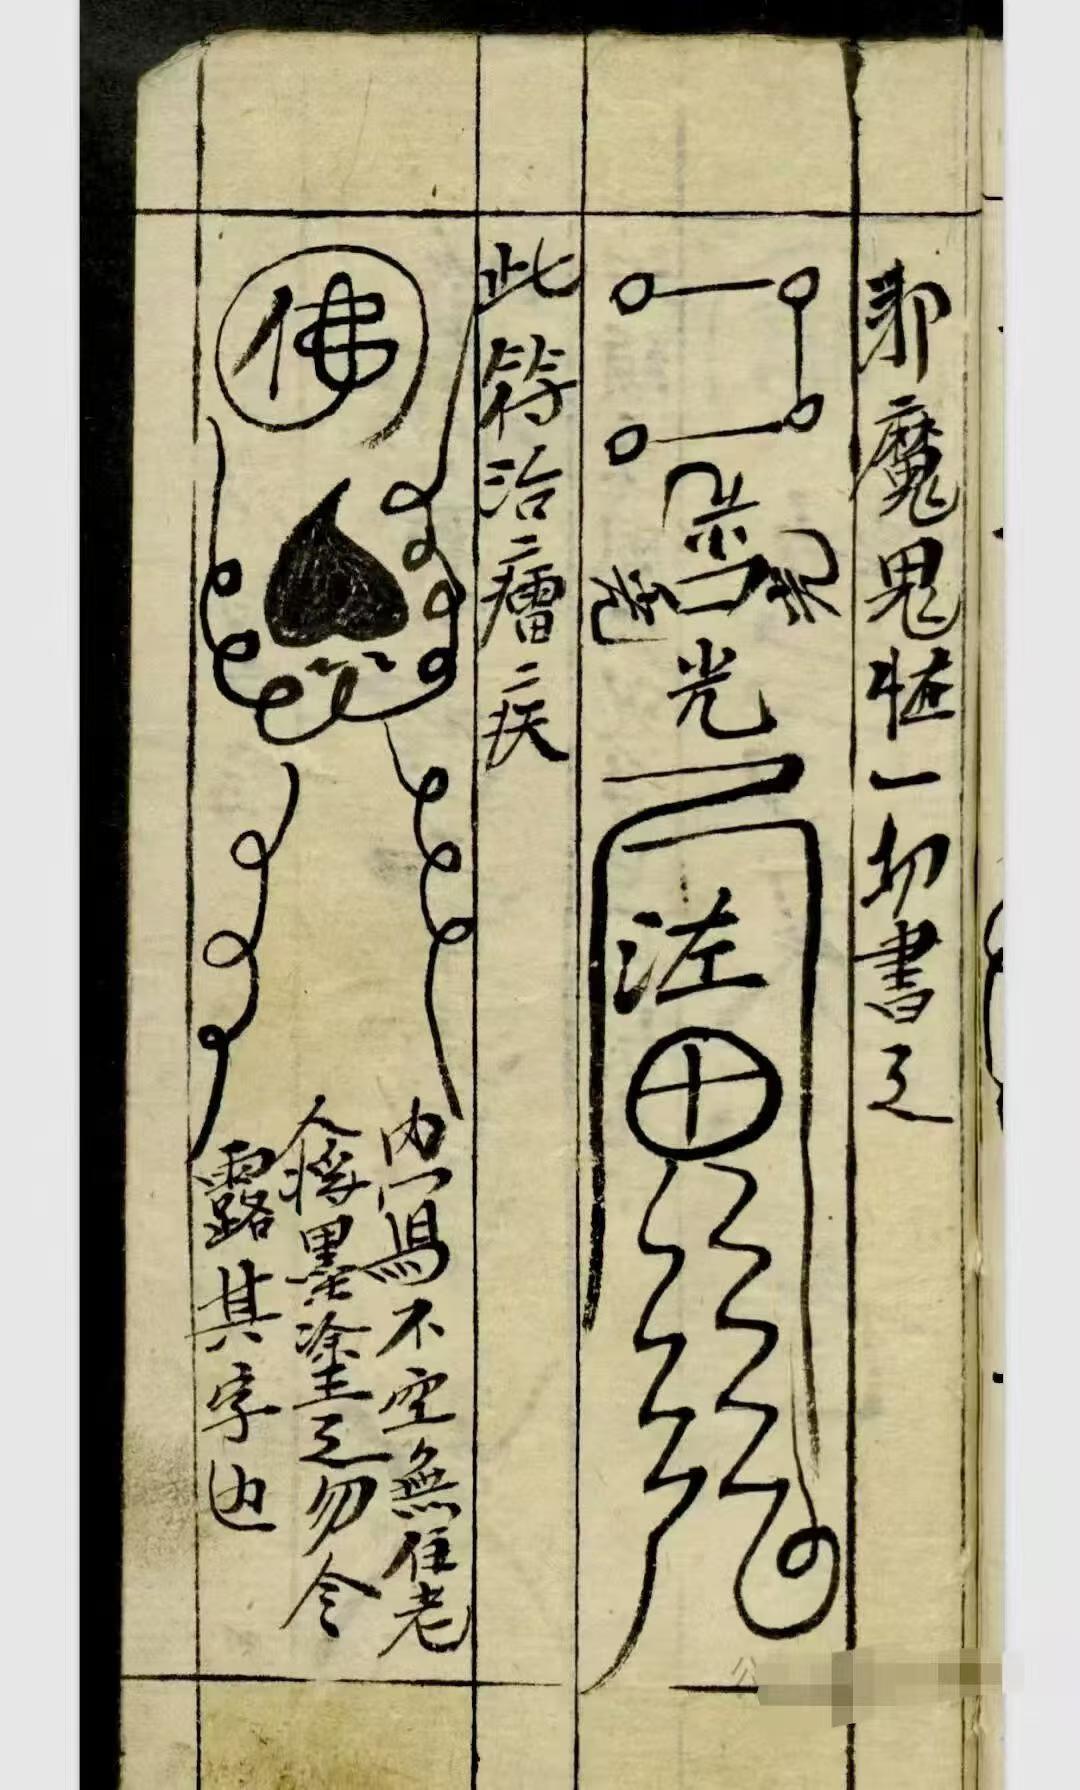 邪魔鬼怪一切書之
光
法
十
此符治癗疾
佛
内寫不空無住老
人將墨塗之勿令
露其字也